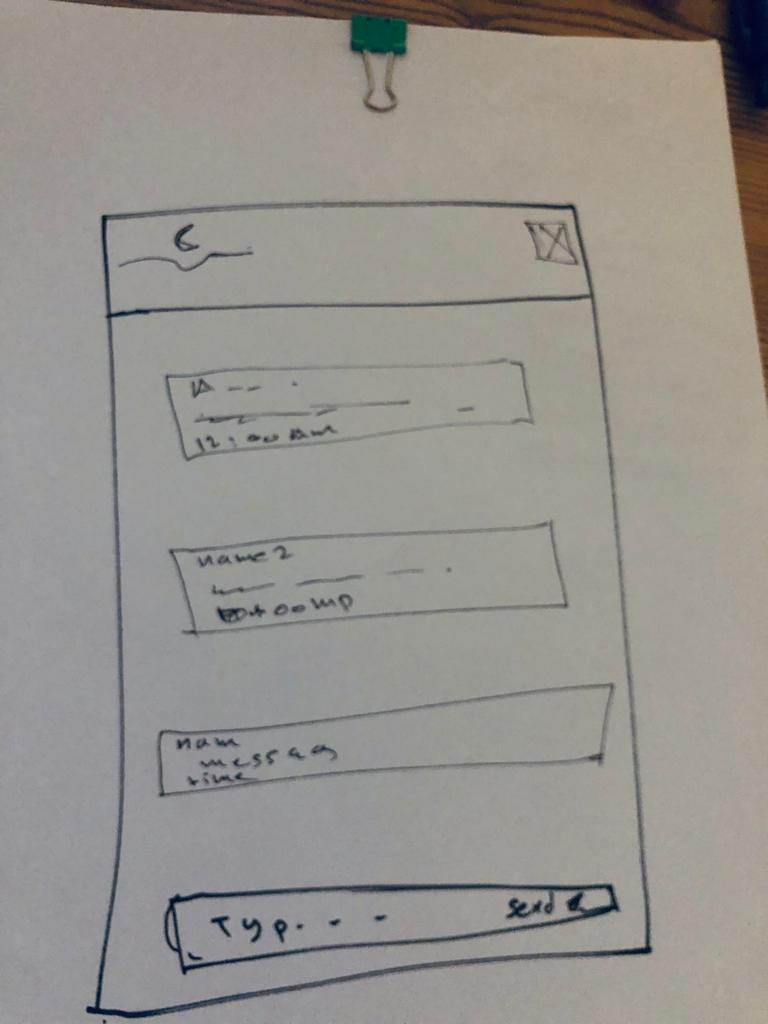 12:00 AM
name 2
nam
messag
time
Typ. - -
send